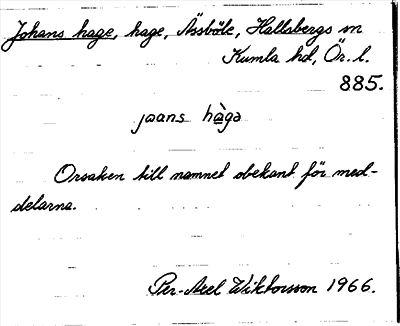 Johans hage, hage, Åssböle, Hallsbergs sn
Kumla hd, Ör. l.
885.
jɔans hàgə
Orsaken till namnet obekant för med-
delarna.
Per-Axel Wiktorsson 1966.